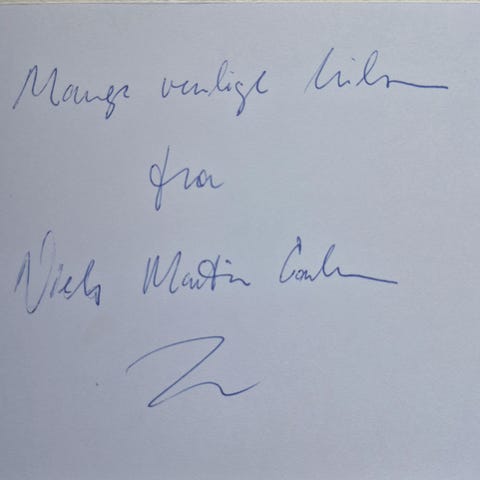 Mange venlige hilsen
fra
Niels Martin